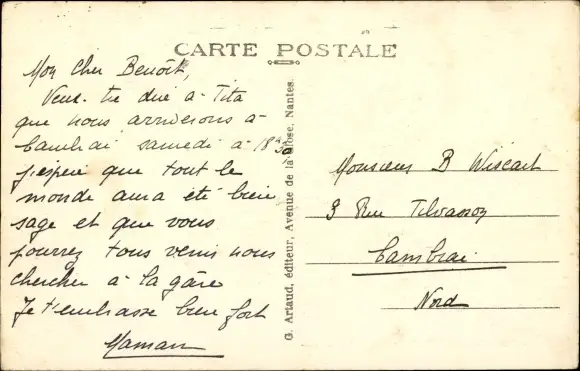 CARTE POSTALE
Mon Cher Benoît,
Veux-tu dire à Tita
que nous arriverons à
Cambrai samedi à 18h30
j'espère que tout le
monde aura été bien
sage et que vous
pourrez tous venir nous
chercher à la gare
Je t'embrasse bien fort
Maman
G. Artaud, éditeur, Avenue de la Close, Nantes.
Monsieur B Wiscart
3 Rue
Cambrai
Nord